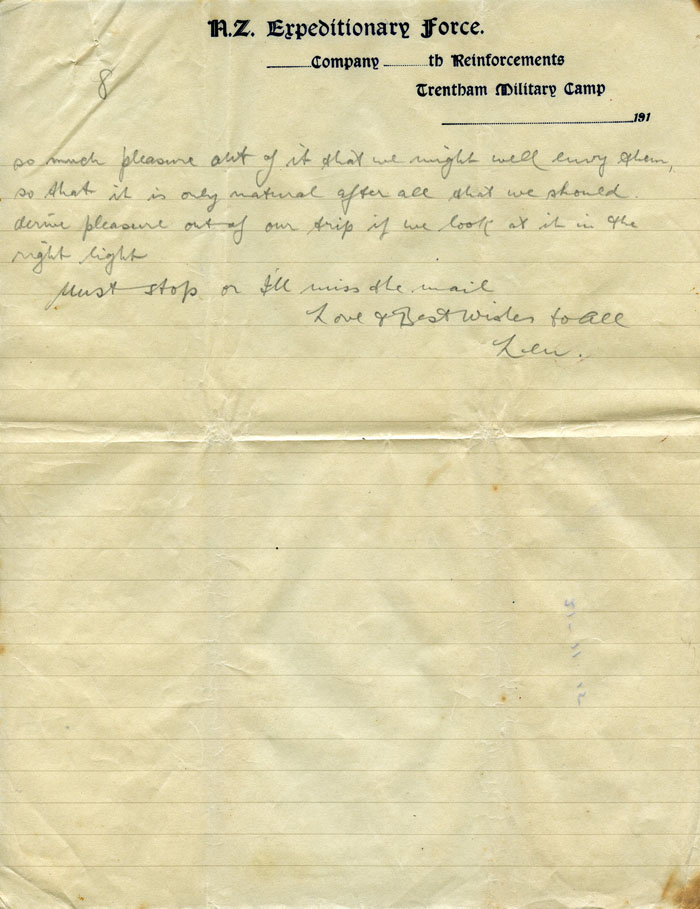 N.Z. Expeditionary Force.
Company th Reinforcements
Trentham Military Camp
191
8
so much pleasure out of it that we might well envy them,
so that it is only natural after all that we should
derive pleasure out of our trip if we look at it in the
right light
Must stop or I'll miss the mail
Love & Best Wishes to All
Len.